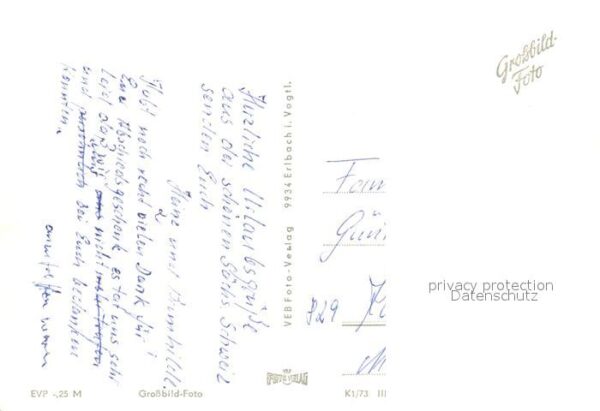 Großbild-
Foto
Herzliche Urlaubsgrüße
aus der schönen Sächs. Schweiz
senden Euch
Heinz und Brunhilde.
Habt noch recht vielen Dank für
Eur Abschiedsgeschenk, es tat uns sehr
leid das wir uns nicht
und bei Euch bedanken
konnten.
VEB Foto-Verlag 9934 Erlbach i. Vogtl.
Fam
Gün
829
privacy protection
Datenschutz
EVP -,25 M
Großbild-Foto
K1/73 III